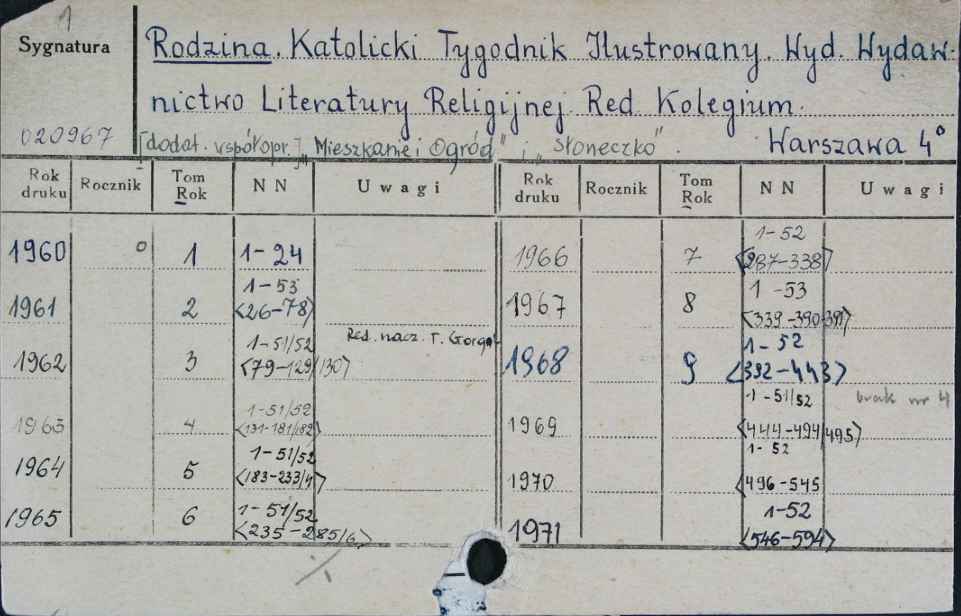 1
Sygnatura
Rodzina. Katolicki Tygodnik Ilustrowany. Wyd. Wydaw-
nictwo Literatury Religijnej. Red. Kolegium.
020967 [dodat. współopr.] „Mieszkanie i Ogród" i „Słoneczko". Warszawa 4°
Rok druku Rocznik Tom Rok NN Uwagi Rok druku Rocznik Tom Rok NN Uwagi
1960 0 1 1-24
1961 2 1-53 <26-78>
1962 3 1-51/52 <79-129/130> Red. nacz. T.
1963 4 1-51/52 <131-181/182>
1964 5 1-51/52 <183-233/4>
1965 6 1-51/52 <235-285/6>
1966 7 1-52 <287-338>
1967 8 1-53 <339-390-391>
1968 9 1-52 <392-443>
1969 1-51/52 <444-494/495> brak nr 4
1970 1-52 <496-545
1971 1-52 <546-594>